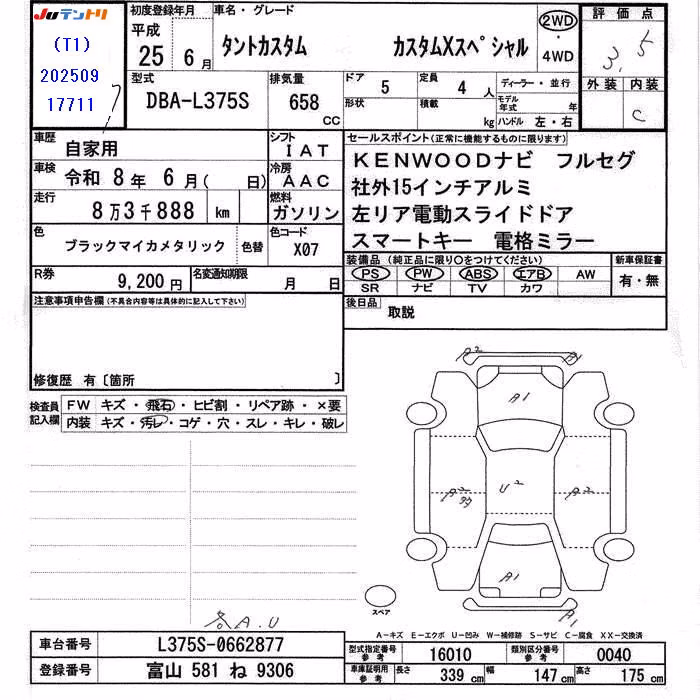 JUテントリ
(T1)
202509
17711
初度登録年月
平成
25 6月
車名・グレード
タントカスタム カスタムXスペシャル
2WD
・
4WD
評価点
3.5
外装 内装
C
型式
DBA-L375S
排気量
658
CC
ドア
5
形状
定員
4人
積載
kg
ディーラー・並行
モデル年式 年
ハンドル 左・右
車歴
自家用
シフト
IAT
車検
令和 8年 6月( 日)
冷房
AAC
走行
8万3千888 km
燃料
ガソリン
色
ブラックマイカメタリック
色替
色コード
X07
R券
9,200円
名変通知期限
月 日
セールスポイント(正常に機能するものに限ります)
KENWOODナビ フルセグ
社外15インチアルミ
左リア電動スライドドア
スマートキー 電格ミラー
装備品(純正品に限り〇をつけてください)
PS PW ABS エアB AW
SR ナビ TV カワ
新車保証書
有・無
後日品
取説
注意事項申告欄(不具合内容等は具体的に記入して下さい)
修復歴 有〔箇所 〕
検査員
記入欄
FW キズ・飛石・ヒビ割・リペア跡・×要
内装 キズ・汚レ・コゲ・穴・スレ・キレ・破レ
A2
A1
A1
U2
A2
A2
A1
A1
スペア
各A.U
A-キズ E-エクボ U-凹み W-補修跡 S-サビ C-腐食 XX-交換済
車台番号
L375S-0662877
登録番号
富山 581 ね 9306
型式指定番号
参考
16010
類別区分番号
参考
0040
車庫証明用
参考
長さ 339cm 幅 147cm 高さ 175cm